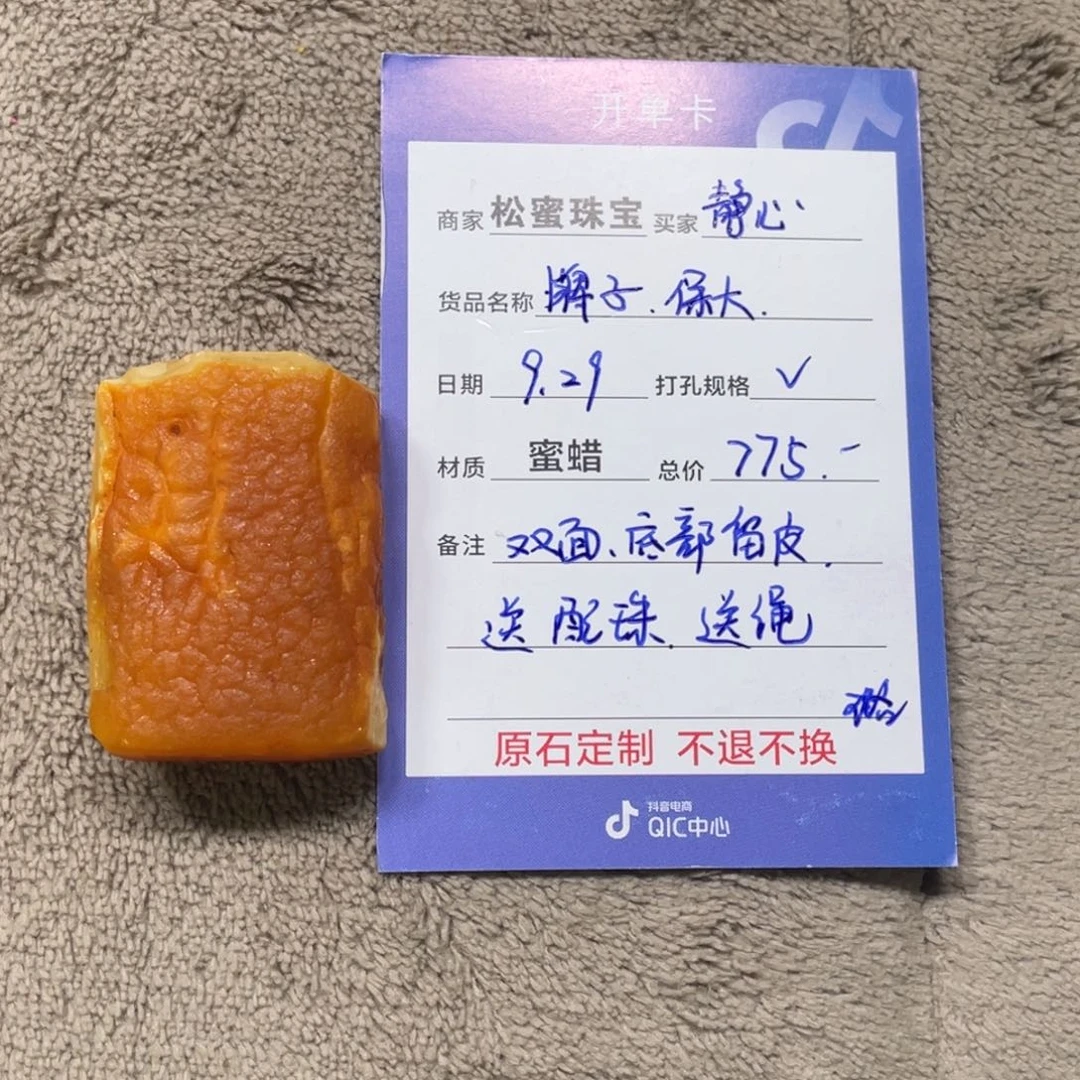 开单卡
商家 松蜜珠宝 买家 静心
货品名称 牌子、保大.
日期 9.29 打孔规格 ✓
材质 蜜蜡 总价 775.-
备注 双面、底部留皮.
送配珠、送绳
原石定制 不退不换
抖音电商
QIC中心